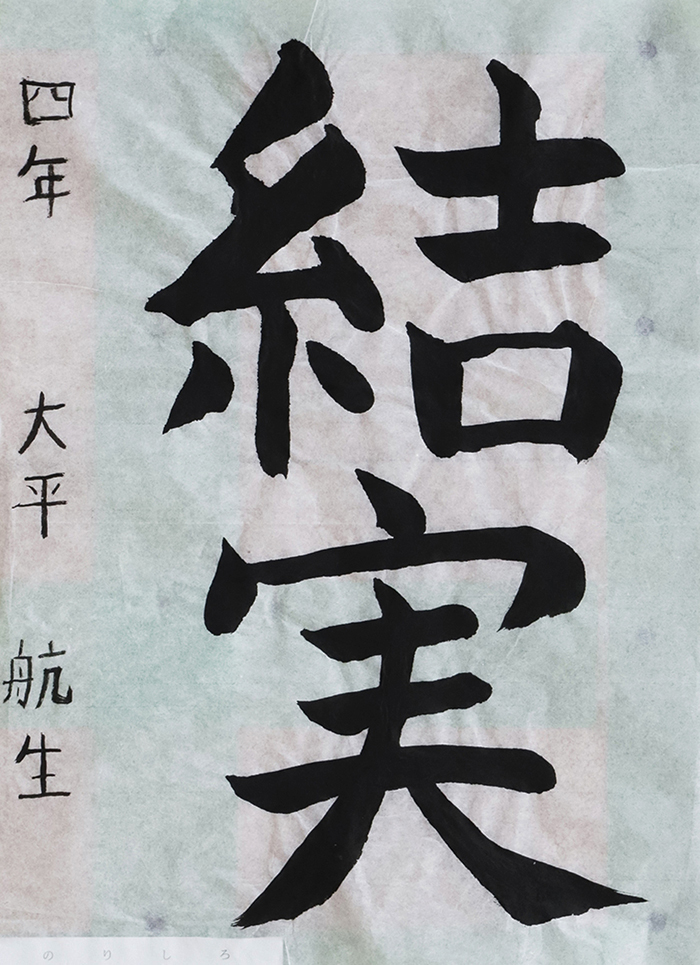 結実
四年 大平 航生
のりしろ